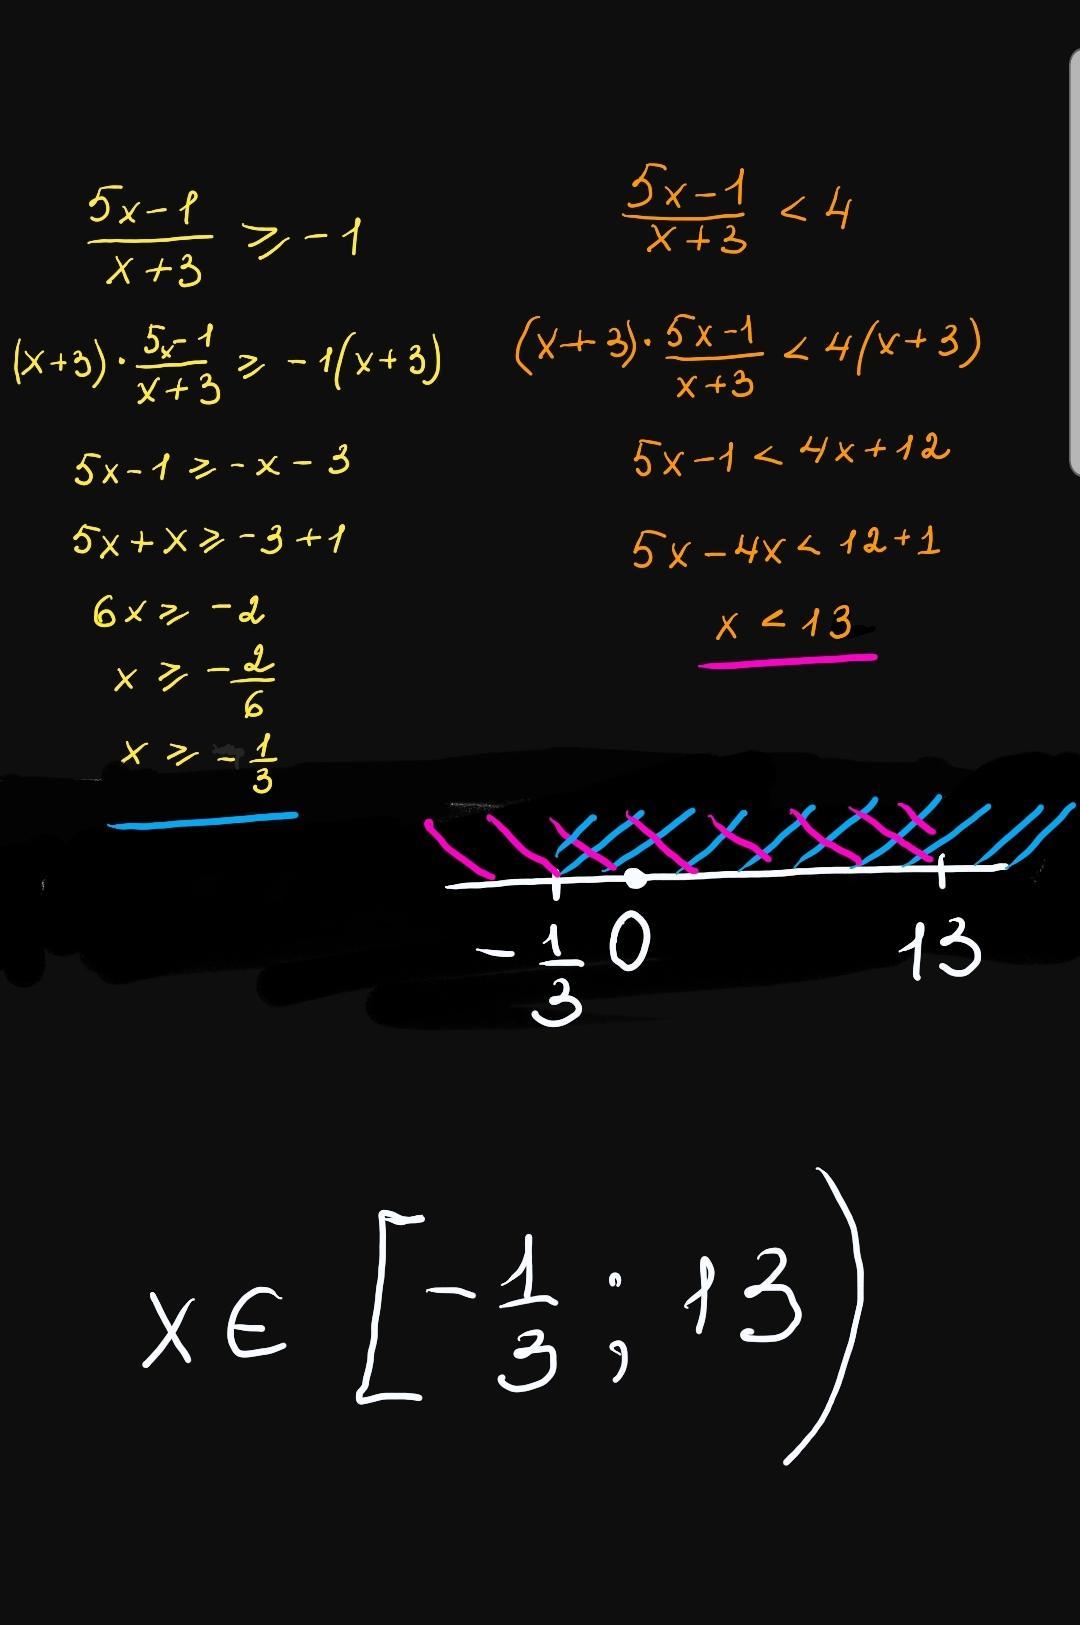 (5x-1)/(x+3) ⩾ -1
(x+3) · (5x-1)/(x+3) ⩾ -1(x+3)
5x-1 ⩾ -x-3
5x+x ⩾ -3+1
6x ⩾ -2
x ⩾ -2/6
x ⩾ -1/3
(5x-1)/(x+3) < 4
(x+3) · (5x-1)/(x+3) < 4(x+3)
5x-1 < 4x+12
5x-4x < 12+1
x < 13
-1/3 0 13
x ∈ [-1/3 ; 13)